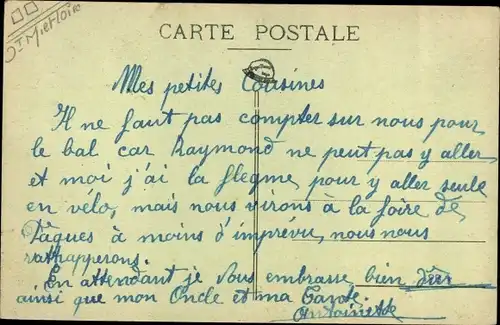 St M. et Loire
CARTE POSTALE
Mes petites Cousines
Il ne faut pas compter sur nous pour
le bal car Raymond ne peut pas y aller
et moi j'ai la flegme pour y aller seule
en vélo, mais nous virons à la foire de
Pâques à moins d'imprévu, nous nous
rathapperons.
En attendant je vous embrasse bien dur
ainsi que mon Oncle et ma Tante.
Antoinette